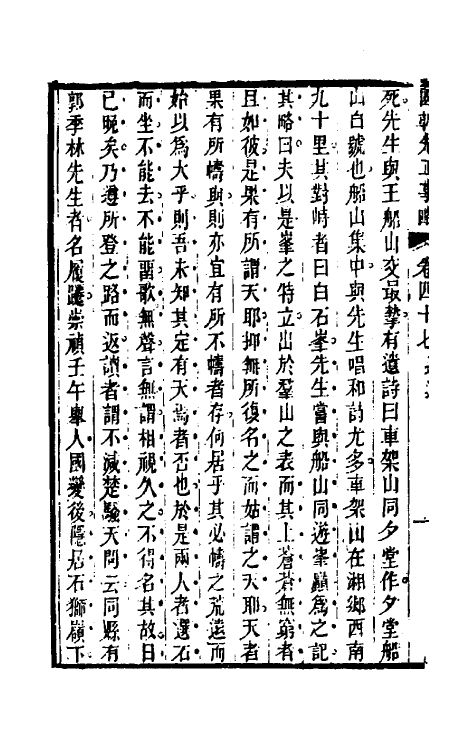 國朝先正事略 卷四十七
死先生與王船山交最摯有遺詩曰車架山同夕堂作夕堂船
山自號也船山集中與先生唱和詩尤多車架山在湘鄉西南
九十里其對峙者曰白石峯先生嘗與船山同遊峯巔爲之記
其略曰夫以是峯之特立出於羣山之表而其上蒼蒼無窮者
且如彼是果有所謂天耶抑無所復名之而姑謂之天耶天者
果有所幬與則亦宜有所不幬者存何居乎其必幬之荒遠而
始以爲大乎則吾未知其定有天焉者否也於是兩人者選石
而坐不能去不能畱歌無聲言無謂相視久之不得名其故日
已晚矣乃遵所登之路而返讀者謂不減楚騷天問云同縣有
郭季林先生者名履躚崇禎壬午舉人國變後隱居石獅嶺下